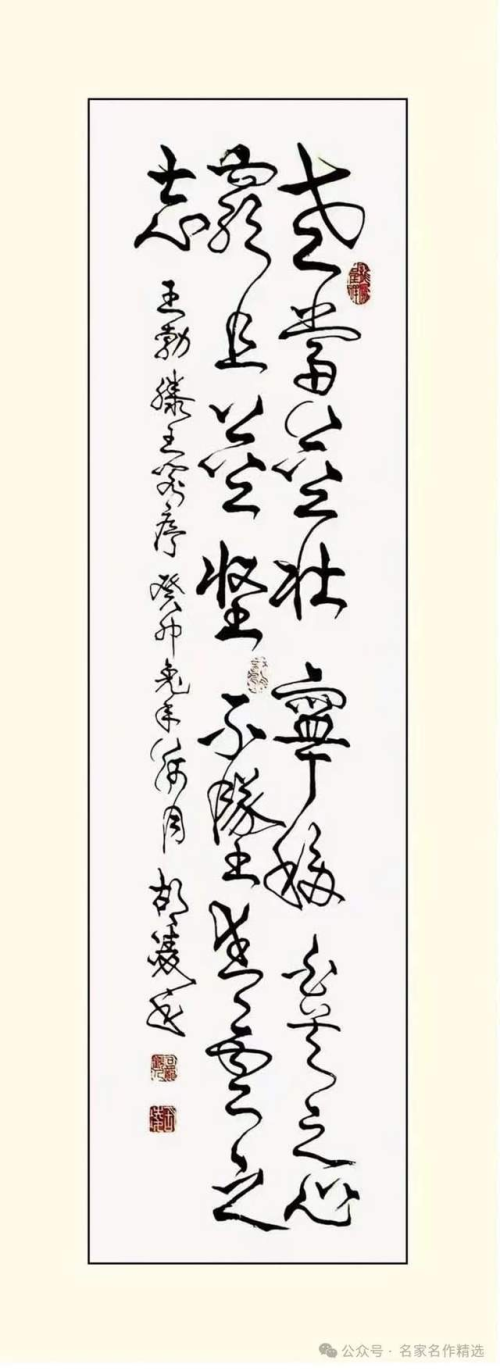 老當益壮寧移白首之心
窮且益堅不墜青雲之
志
王勃滕王閣序癸卯兔年月胡
公众号·名家名作精选